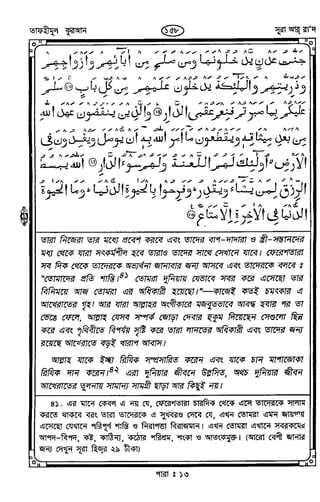 তাফহীমুল কুরআন
১৫৮
সূরা আর্ রা'দ
جَنّٰتُ عَدْنٍ يَّدْخُلُوْنَهَا وَمَنْ صَلَحَ مِنْ اٰبَآئِهِمْ وَاَزْوَاجِهِمْ
وَذُرِّيّٰتِهِمْ وَالْمَلٰٓئِكَةُ يَدْخُلُوْنَ عَلَيْهِمْ مِّنْ كُلِّ بَابٍ ۞ سَلٰمٌ
عَلَيْكُمْ بِمَا صَبَرْتُمْ فَنِعْمَ عُقْبَى الدَّارِ ۞ وَالَّذِيْنَ يَنْقُضُوْنَ عَهْدَ اللّٰهِ
مِنْۢ بَعْدِ مِيْثَاقِهٖ وَيَقْطَعُوْنَ مَآ اَمَرَ اللّٰهُ بِهٖٓ اَنْ يُّوْصَلَ وَيُفْسِدُوْنَ فِى
الْاَرْضِ ۙ اُولٰٓئِكَ لَهُمُ اللَّعْنَةُ وَلَهُمْ سُوْٓءُ الدَّارِ ۞ اَللّٰهُ يَبْسُطُ
الرِّزْقَ لِمَنْ يَّشَآءُ وَيَقْدِرُ ؕ وَفَرِحُوْا بِالْحَيٰوةِ الدُّنْيَا ؕ وَمَا الْحَيٰوةُ
الدُّنْيَا فِى الْاٰخِرَةِ اِلَّا مَتَاعٌ ۞
তারা নিজেরা তার মধ্যে প্রবেশ করবে এবং তাদের বাপ-দাদারা ও স্ত্রী-সন্তানদের
মধ্য থেকে যারা সৎকর্মশীল হবে তারাও তাদের সাথে সেখানে যাবে। ফেরেশতারা
সব দিক থেকে তাদেরকে অভ্যর্থনা জানাবার জন্য আসবে এবং তাদেরকে বলবে ঃ
"তোমাদের প্রতি শান্তি।৪১ তোমরা দুনিয়ায় যেভাবে সবর করে এসেছো তার
বিনিময়ে আজ তোমরা এর অধিকারী হয়েছো।"—কাজেই কতই চমৎকার এ
আখেরাতের গৃহ! আর যারা আল্লাহর অংগীকারে মজবুতভাবে আবদ্ধ হবার পর তা
ভেঙে ফেলে, আল্লাহ যেসব সম্পর্ক জোড়া দেবার হুকুম দিয়েছেন সেগুলো ছিন্ন
করে এবং পৃথিবীতে বিপর্যয় সৃষ্টি করে তারা লানতের অধিকারী এবং তাদের জন্য
রয়েছে আখেরাতে বড়ই খারাপ আবাস।
আল্লাহ যাকে ইচ্ছা রিযিক সম্প্রসারিত করেন এবং যাকে চান মাপাজোকা
রিযিক দান করেন।৪২ এরা দুনিয়ার জীবনে উল্লসিত, অথচ দুনিয়ার জীবন
আখেরাতের তুলনায় সামান্য সামগ্রী ছাড়া আর কিছুই নয়।
৪১. এর মানে কেবল এ নয় যে, ফেরেশতারা চারদিক থেকে এসে তাদেরকে সালাম
করতে থাকবে বরং তারা তাদেরকে এ সুখবরও দেবে যে, এখন তোমরা এমন জায়গায়
এসেছো যেখানে পরিপূর্ণ শান্তি ও নিরাপত্তা বিরাজমান। এখন তোমরা এখানে সবরকমের
আপদ-বিপদ, কষ্ট, কাঠিন্য, কঠোর পরিশ্রম, শংকা ও আতংকমুক্ত। (আরো বেশী জানার
জন্য দেখুন সূরা হিজর ২৯ টীকা)
পারা ঃ ১৩